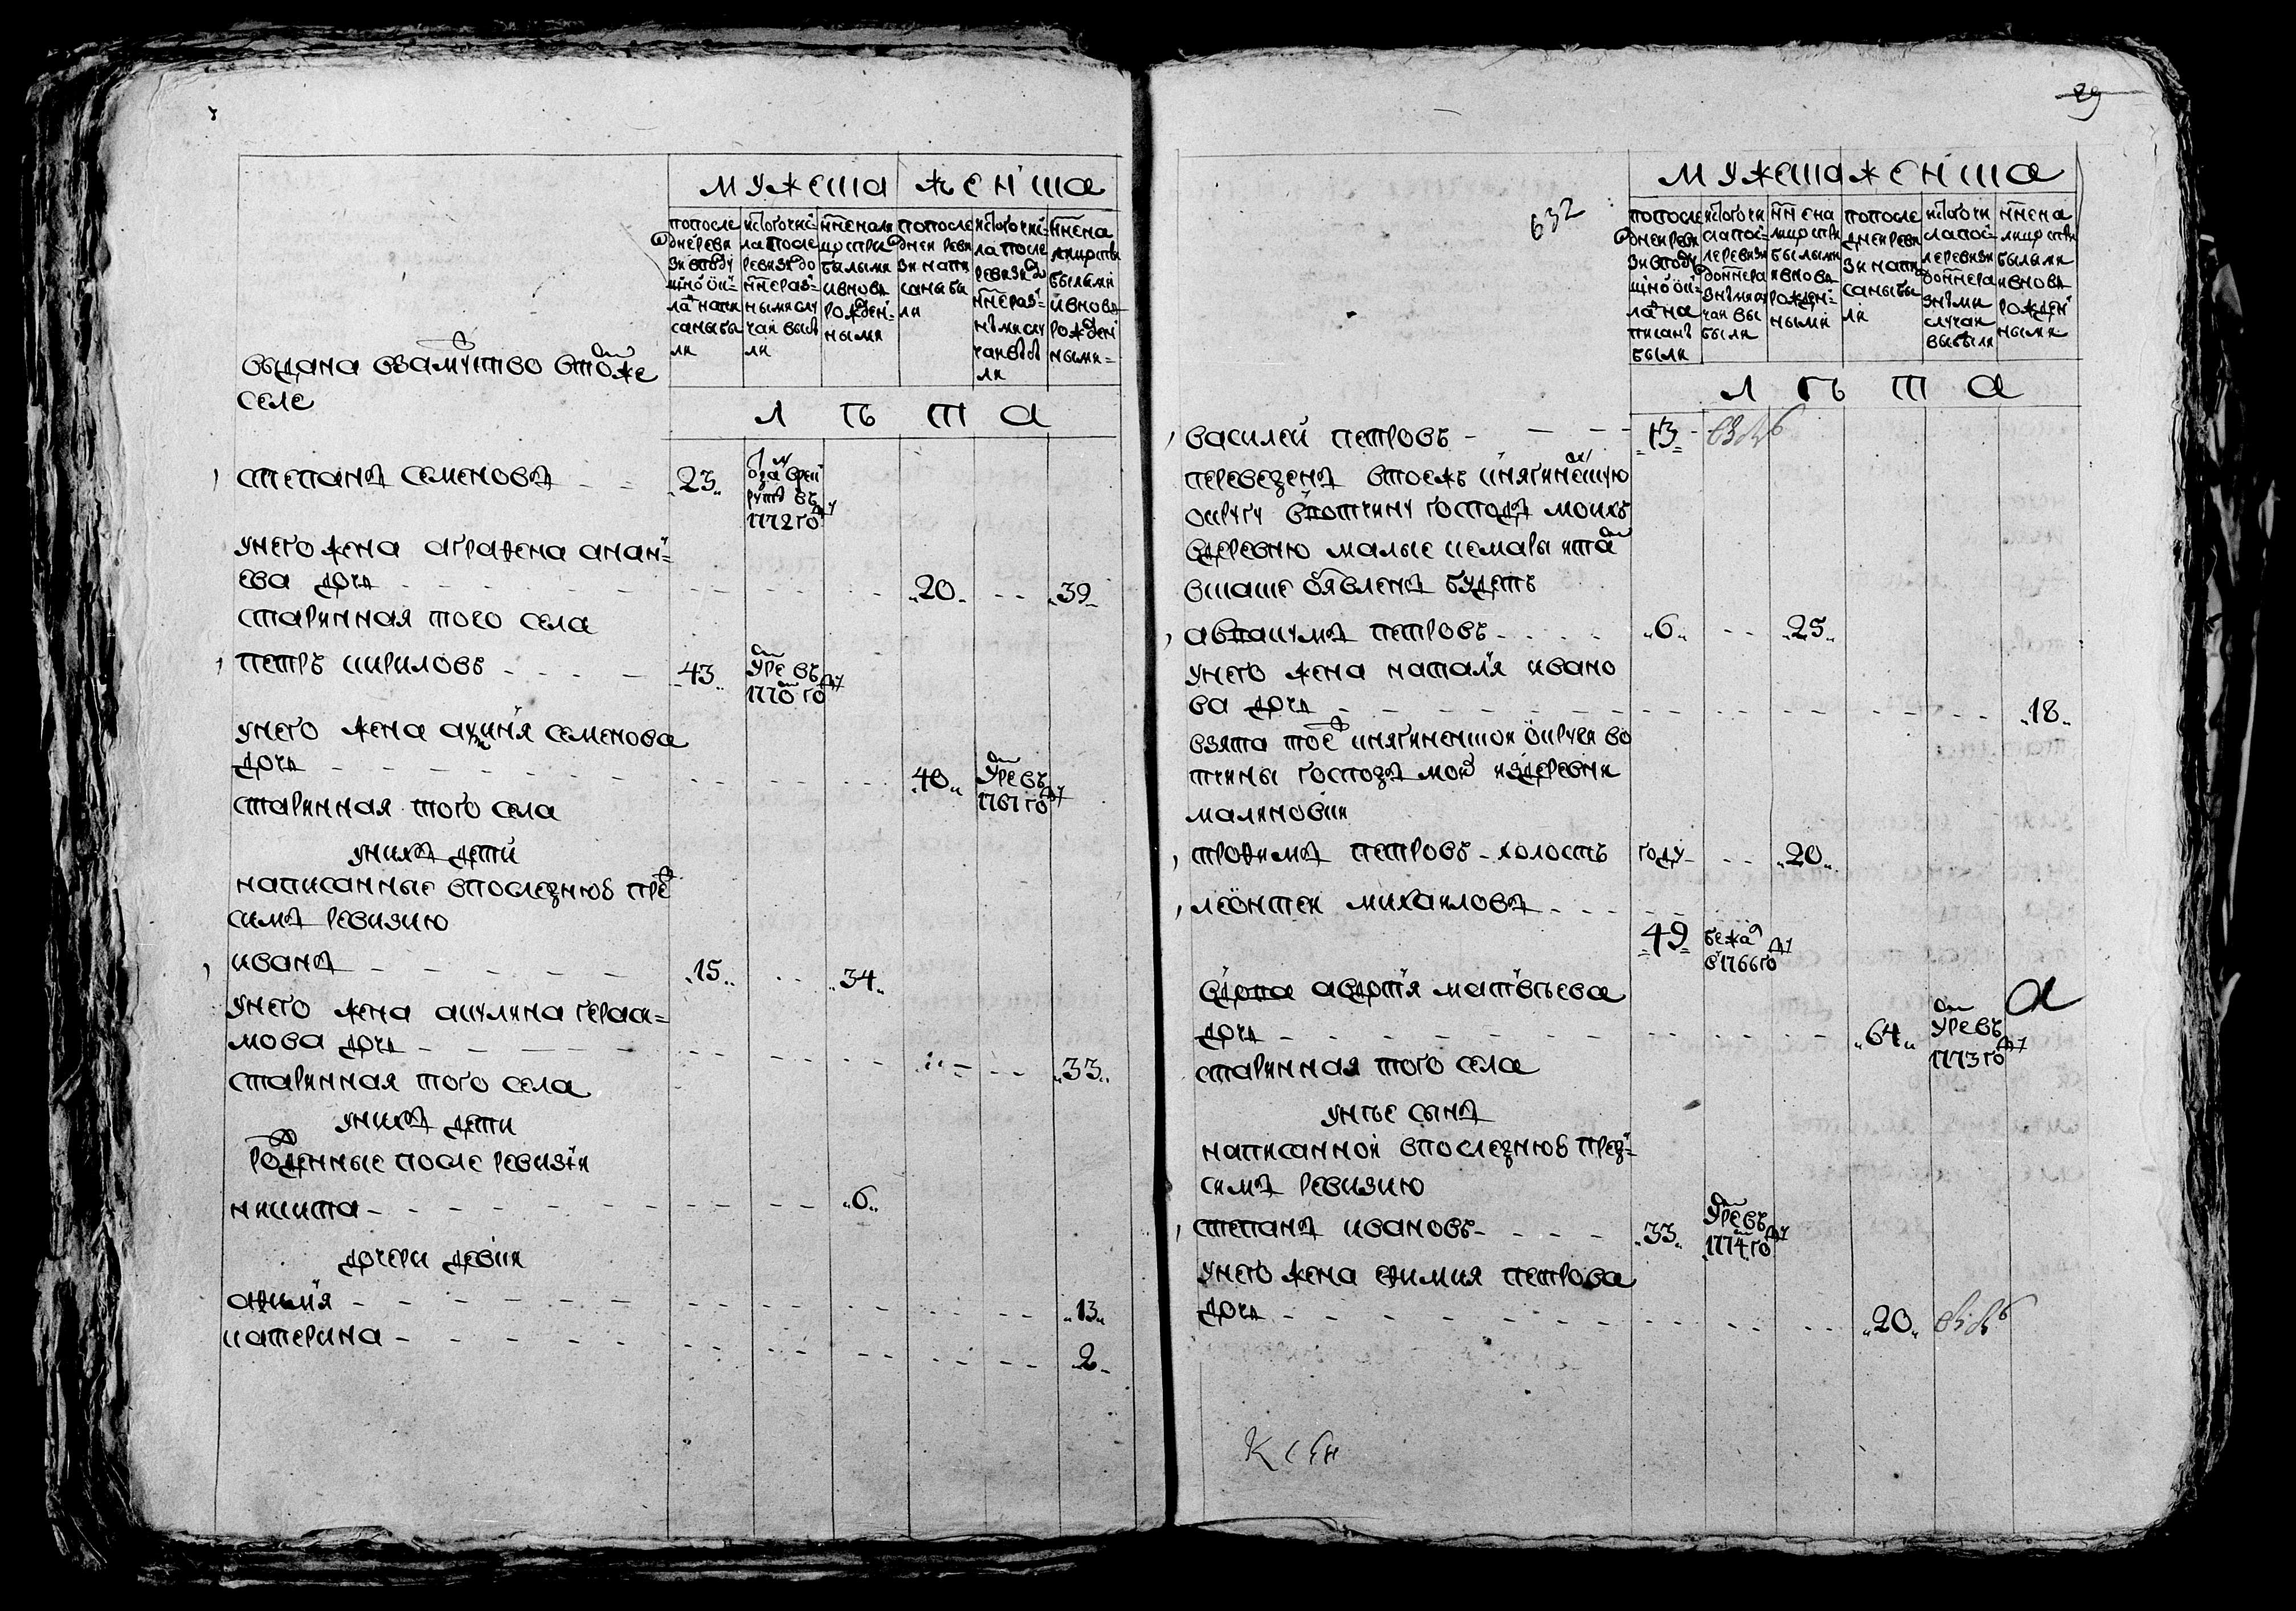 мужеска женска
по после
дней реви
зии в поду
шной ок
лад напи
саны бы
ли
ис того чис
ла после
ревизии до
ныне раз
ными слу
чаи выбы
ли
ныне на ли
цо с при
былыми
и вновь
рожден
ными
по после
дней реви
зии напи
саны бы
ли
ис того чис
ла после
ревизии до
ныне раз
ными слу
чаи выбы
ли
ныне на
лицо с при
былыми
и вновь
рожден
ными
лѣта
выдана взамужство в том же
селе
степанъ семеновъ 23 отдан в рек
руты въ
1772 году
у него жена аграфена анань
ева дочь 20 39
старинная того села
петръ кириловъ 43 умре въ
1770 году
у него жена аксинья семенова
дочь 40 умре въ
1767 году
старинная того села
у нихъ дети
написанные в последнюю пред
симъ ревизию
иванъ 15 34
у него жена акулина гераси
мова дочь 33
старинная того села
у нихъ дети
рожденные после ревизiи
никита 6
дочери девки
афимья 13
катерина 2
29
632
мужеска женска
по после
дней реви
зии в поду
шной ок
лад на
писаны
были
ис того чи
сла пос
ле ревизии
до ныне ра
зными слу
чаи вы
были
ныне на
лицо с при
былыми
и вновь
рожден
ными
по после
дней реви
зии напи
саны бы
ли
ис того чи
сла пос
ле ревизии
до ныне ра
зными
случаи
выбыли
ныне на
лицо с при
былыми
и вновь
рожден
ными
лѣта
василей петровъ 13
переведенъ в тоежъ княгининскую
округу в вотчину господъ моихъ
в деревню малые кемары и там
в скаске объявленъ будетъ
авакумъ петровъ 6 25
у него жена наталья ивано
ва дочь 18
взята тоей княгининской округи во
тчины господъ моих из деревни
малиновки
трофимъ петровъ холостъ году 20
леонтей михаиловъ
49 бежал
в 1766 году
вдова авдотья матвѣева
дочь 64 умре въ
1773 году
старинная того села
у нѣе сынъ
написанной в последнюю пред
симъ ревизию
степанъ ивановъ 33 умре въ
1774 году
у него жена ефимия петрова
дочь 20